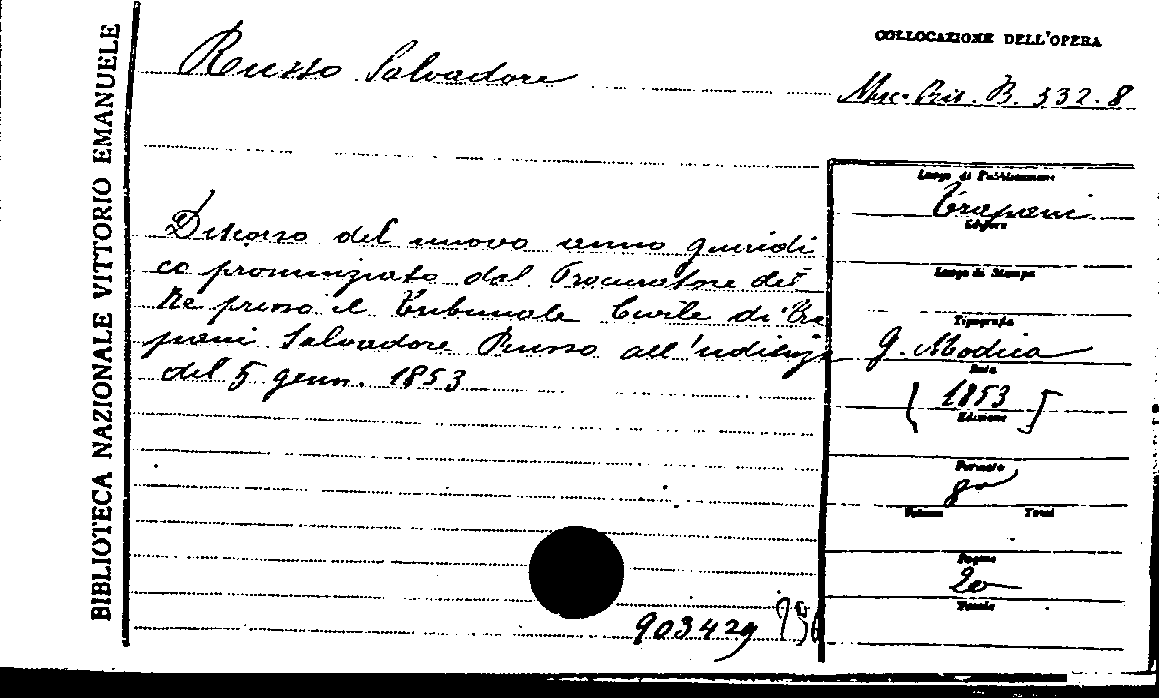 BIBLIOTECA NAZIONALE VITTORIO EMANUELE
Russo Salvadore
COLLOCAZIONE DELL'OPERA
Misc. Ris. B. 332.8
Discorso del nuovo anno giuridi
co pronunziato dal Procuratore del
Re presso il Tribunale Civile di Tra
pani Salvadore Russo all'udienza
del 5 genn. 1853
Luogo di Pubblicazione
Trapani
Editore
Luogo di Stampa
Tipografia
G. Modica
Data
[1853]
Edizione
Formato
8º
Volume Tomi
Pagine
20
Tavole
903429